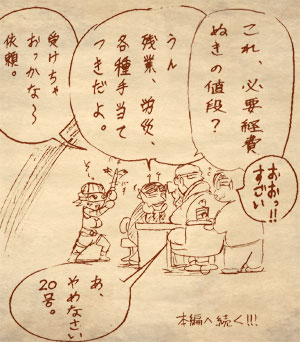 これ、必要経費
ぬきの値段?
おおっ!!
すごい
うん
残業、労災、
各種手当て
つきだよ。
受けちゃ
おっかな〜
依頼。
あ、
やめなさい
20号。
本編へ続く!!!